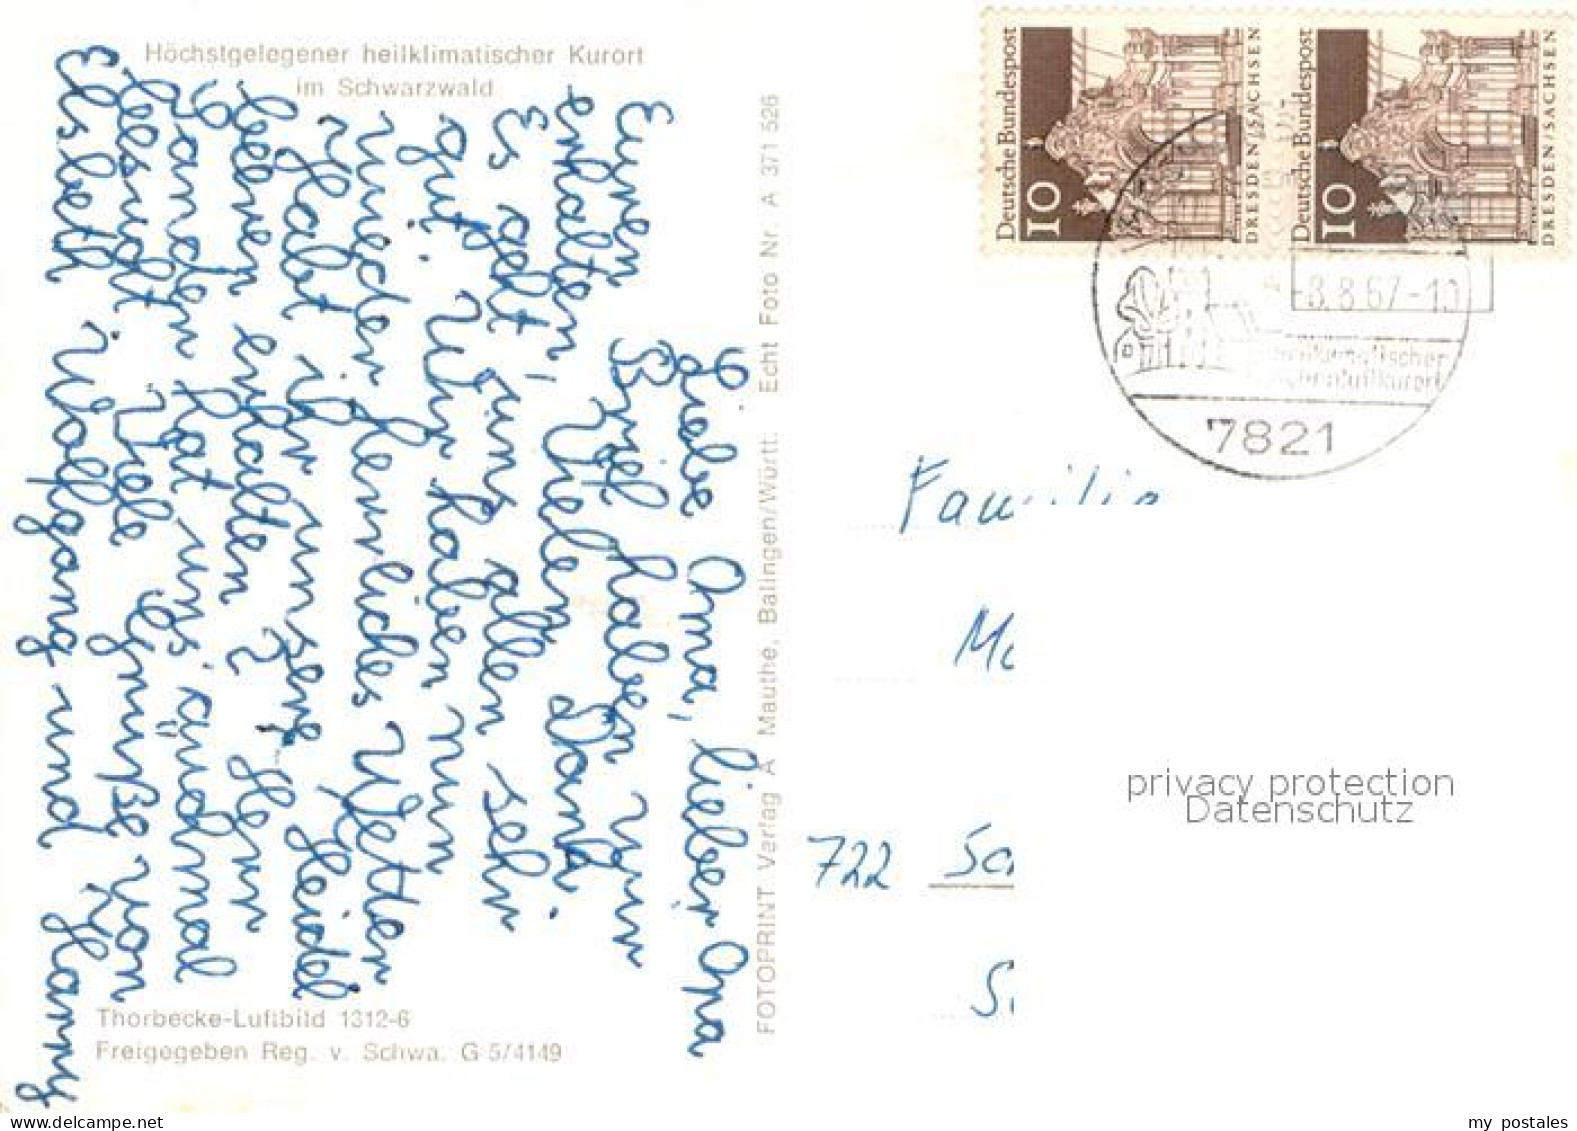 Höchstgelegener heilklimatischer Kurort
im Schwarzwald
Liebe Oma, lieber Opa
Euren Brief haben wir
erhalten, Vielen Dank.
Es geht uns allen sehr
gut. Wir haben nun
wieder herrliches Wetter
Habt ihr unsere Heidel
beeren erhalten? Herr
Jander hat uns' äüdmal
besucht. Viele Grüße von
Elsbeth Wolfgang und Hanny
Thorbecke-Luftbild 1312-6
Freigegeben Reg. v. Schwa. G 5/4149
FOTOPRINT Verlag A Mauthe, Balingen/Württ. Echt Foto Nr. A 371 526
Deutsche Bundespost
10
DRESDEN/SACHSEN
Deutsche Bundespost
10
DRESDEN/SACHSEN
-8.8.67-10
7821
Familie
722
privacy protection
Datenschutz
my postales